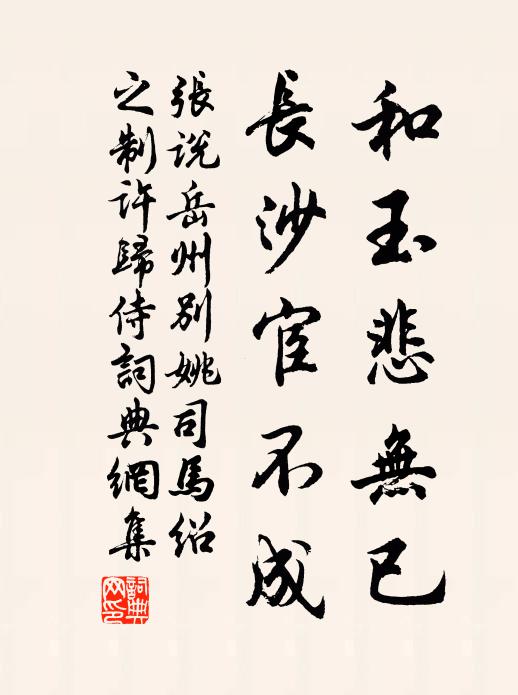 和玉悲無已
長沙宦不成
張説岳州别姚司馬紹
之制許歸侍詞典網集
詞典網印